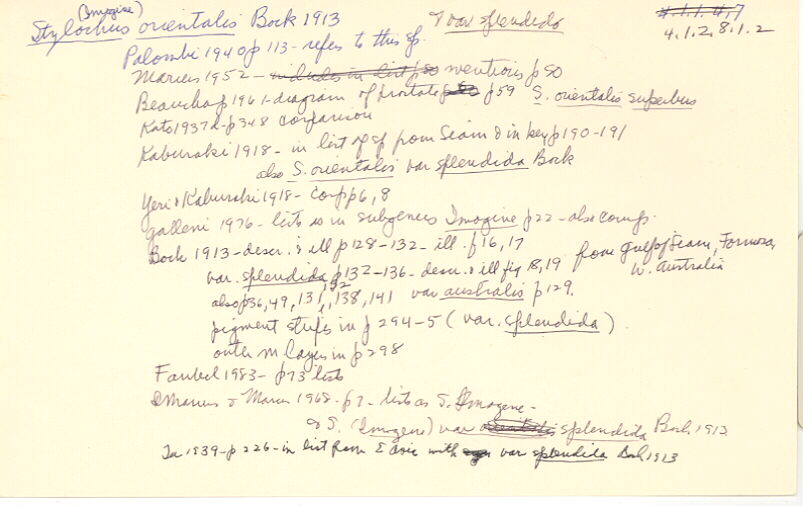 (Imogine)
Stylochus orientalis Bock 1913 & var splendida
4.1.1.4,7
4.1.2.8.1.2
Palombi 1940 p 113 - refers to this sp.
Marcus 1952 - includes in list p 50 mentions p 50
Beauchamp 1961 - diagram of prostate p 59 S. orientalis superbus
Kato 1937d - p 348 comparison
Kaburaki 1918 - in list of sp from Siam & in key p 190-191
also S. orientalis var splendida Bock
Yeri & Kaburaki 1918 - comp p 6, 8
Galleni 1976 - lists as in subgenus Imogine p 22 - also comp.
Bock 1913 - descr. & ill p 128-132 - ill. f 16, 17
var. splendida p 132-136 - descr. & ill fig 18, 19 from Gulf of Siam, Formosa,
W. Australia
also p 36, 49, 131, 132, 138, 141 var australis p 129.
pigment stripes in p 294-5 (var. splendida)
outer m layer in p 298
Faubel 1983 - p 73 lists
Marcus & Marcus 1968 - p 7 - lists as S. Imogene -
& S. (Imogene) var splendida Bock 1913
1939 - p 226 - in list from with var splendida Bock 1913